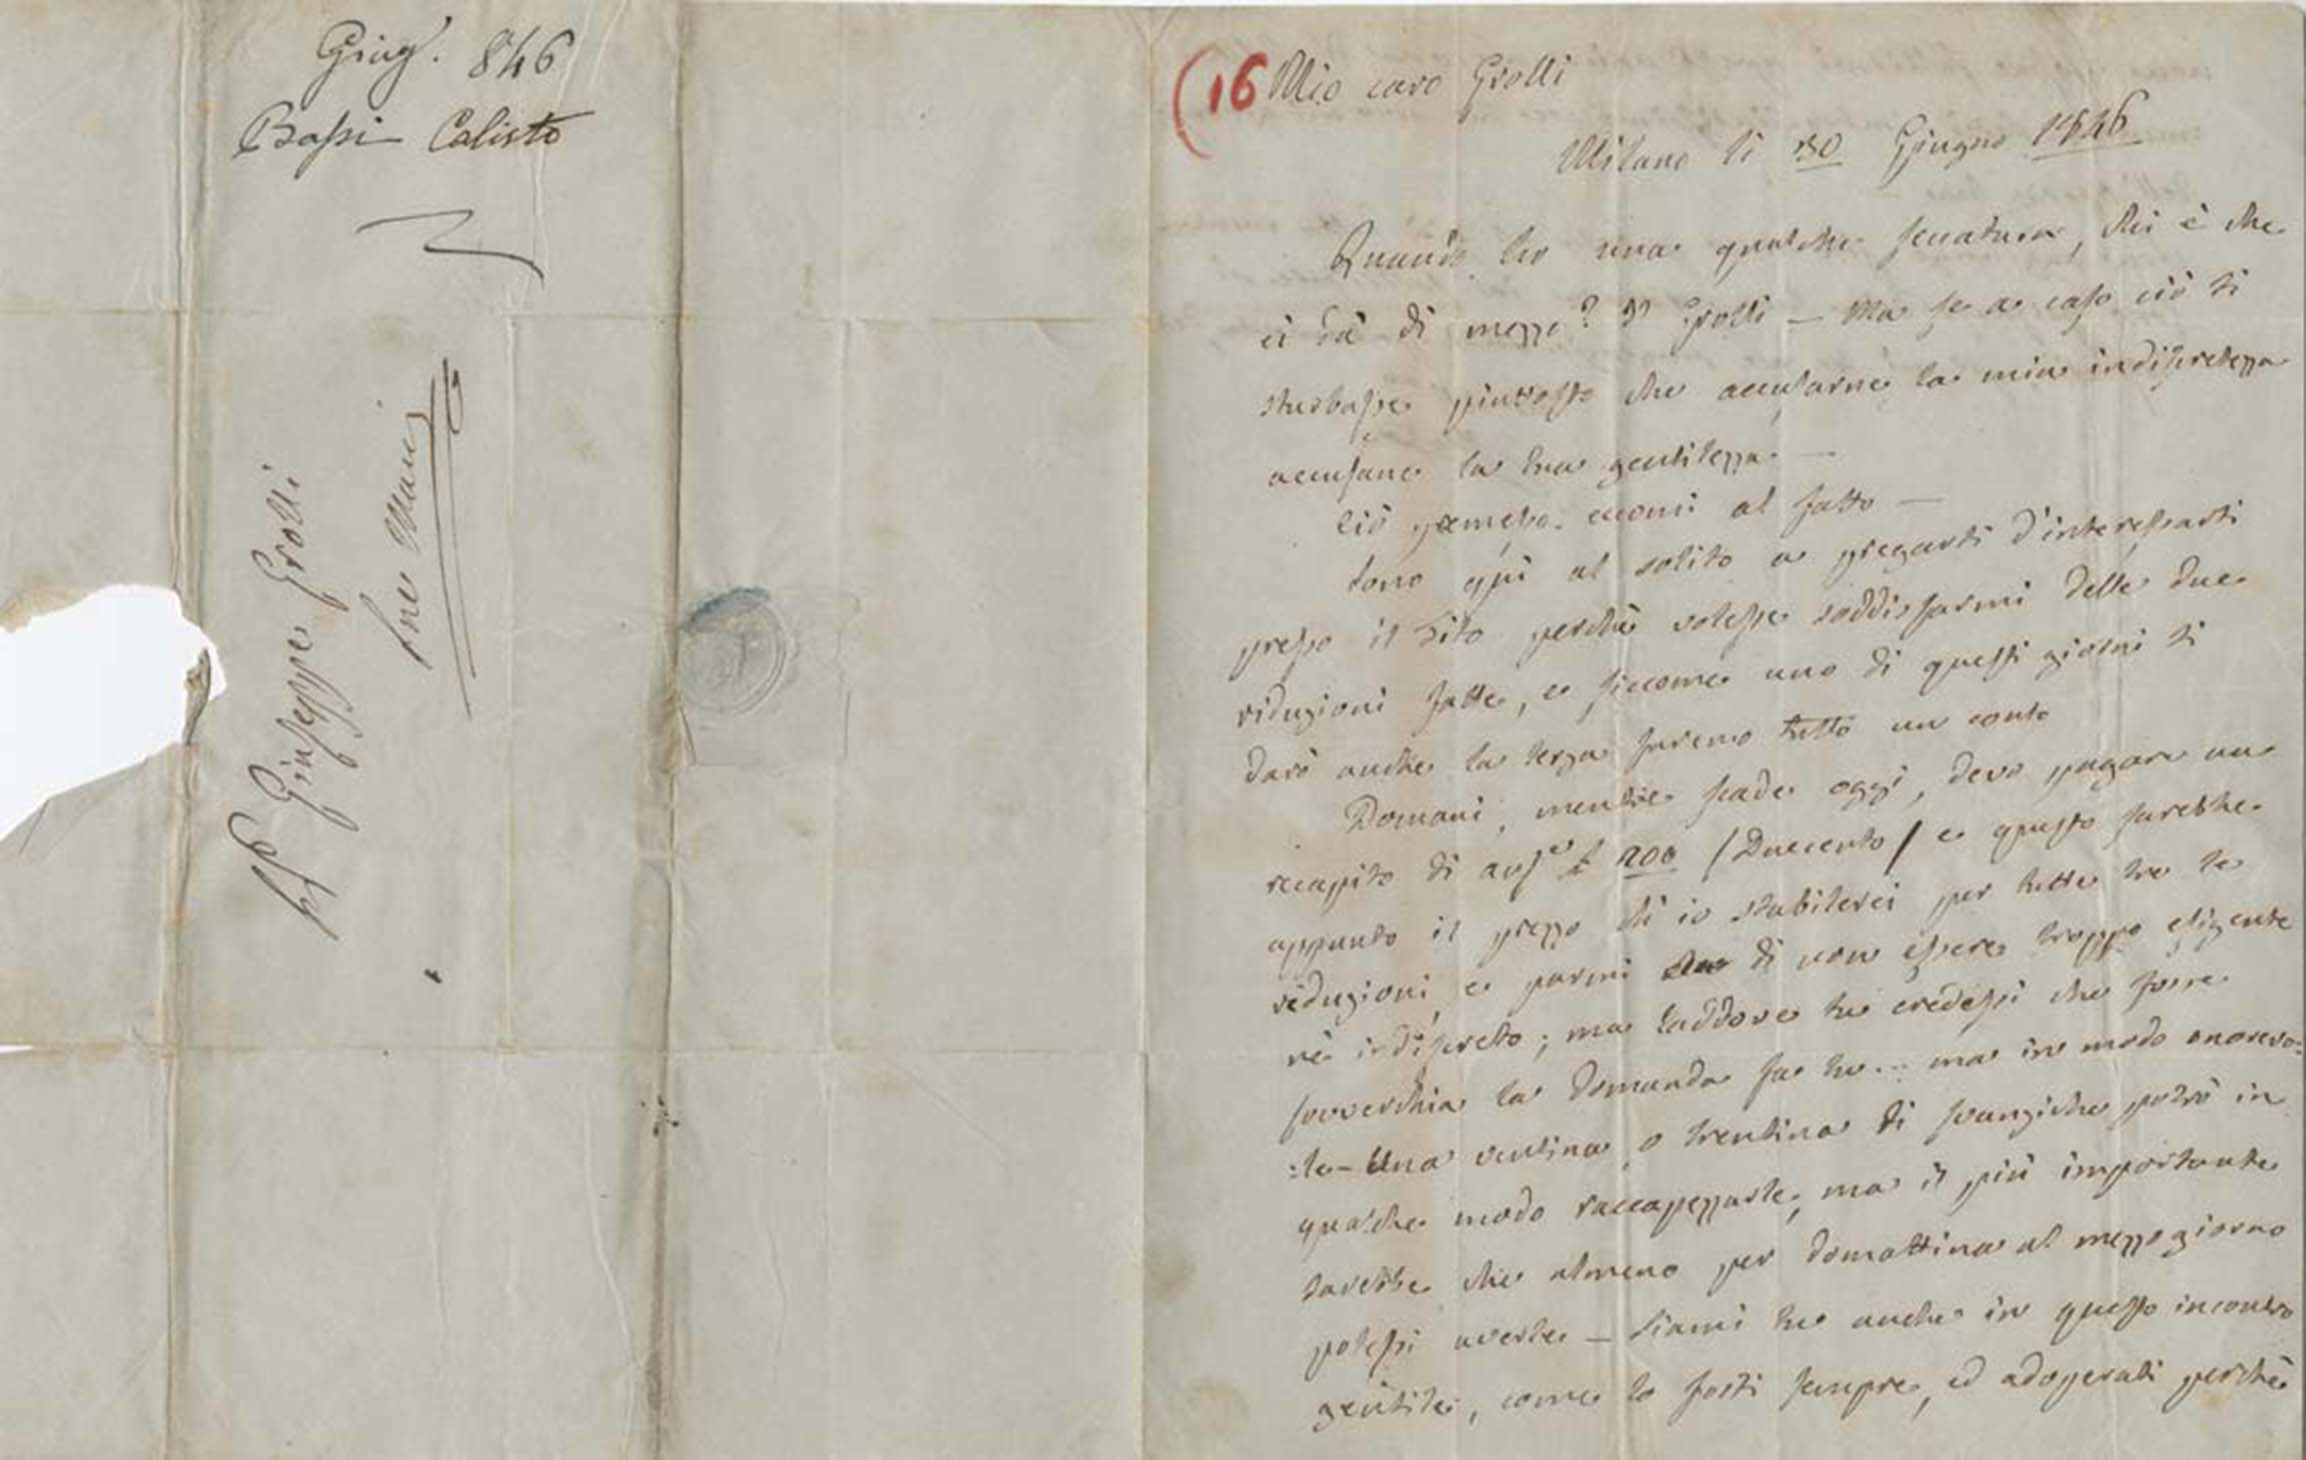 Giug. 846
Bassi Calisto
Giuseppe Grolli
Sue Mani
(16
Mio caro Grolli
Milano li 30 Giugno 1846
Quando ho una qualche seccatura, chi è che
ci dà di mezzo? Grolli — Ma se a caso ciò ti
sturbasse piuttosto che accusarne la mia indiscretezza
accusane la tua gentilezza. —
Ciò premesso eccomi al fatto —
Sono quì al solito a pregarti d'interessarti
presso il Tito perchè volesse soddisfarmi delle due
riduzioni fatte, e siccome uno di questi giorni ti
darò anche la terza faremo tutto un conto
Domani, mentre scade oggi, devo pagare un
recapito di aus.e £ 200 (Duecento) e questo sarebbe
appunto il prezzo ch'io stabilirei per tutte tre le
riduzioni, e parmi di non essere troppo esigente
nè indiscreto; ma laddove tu credessi che fosse
soverchia la domanda fa tu... ma in modo onorevo=
=le — Una ventina o trentina di svanziche potrò in
qualche modo raccapezzarle, ma il più importante
sarebbe che almeno per domattina al mezzogiorno
potessi averle — Siami tu anche in questo incontro
gentile, come lo fosti sempre, ed adoperati perchè